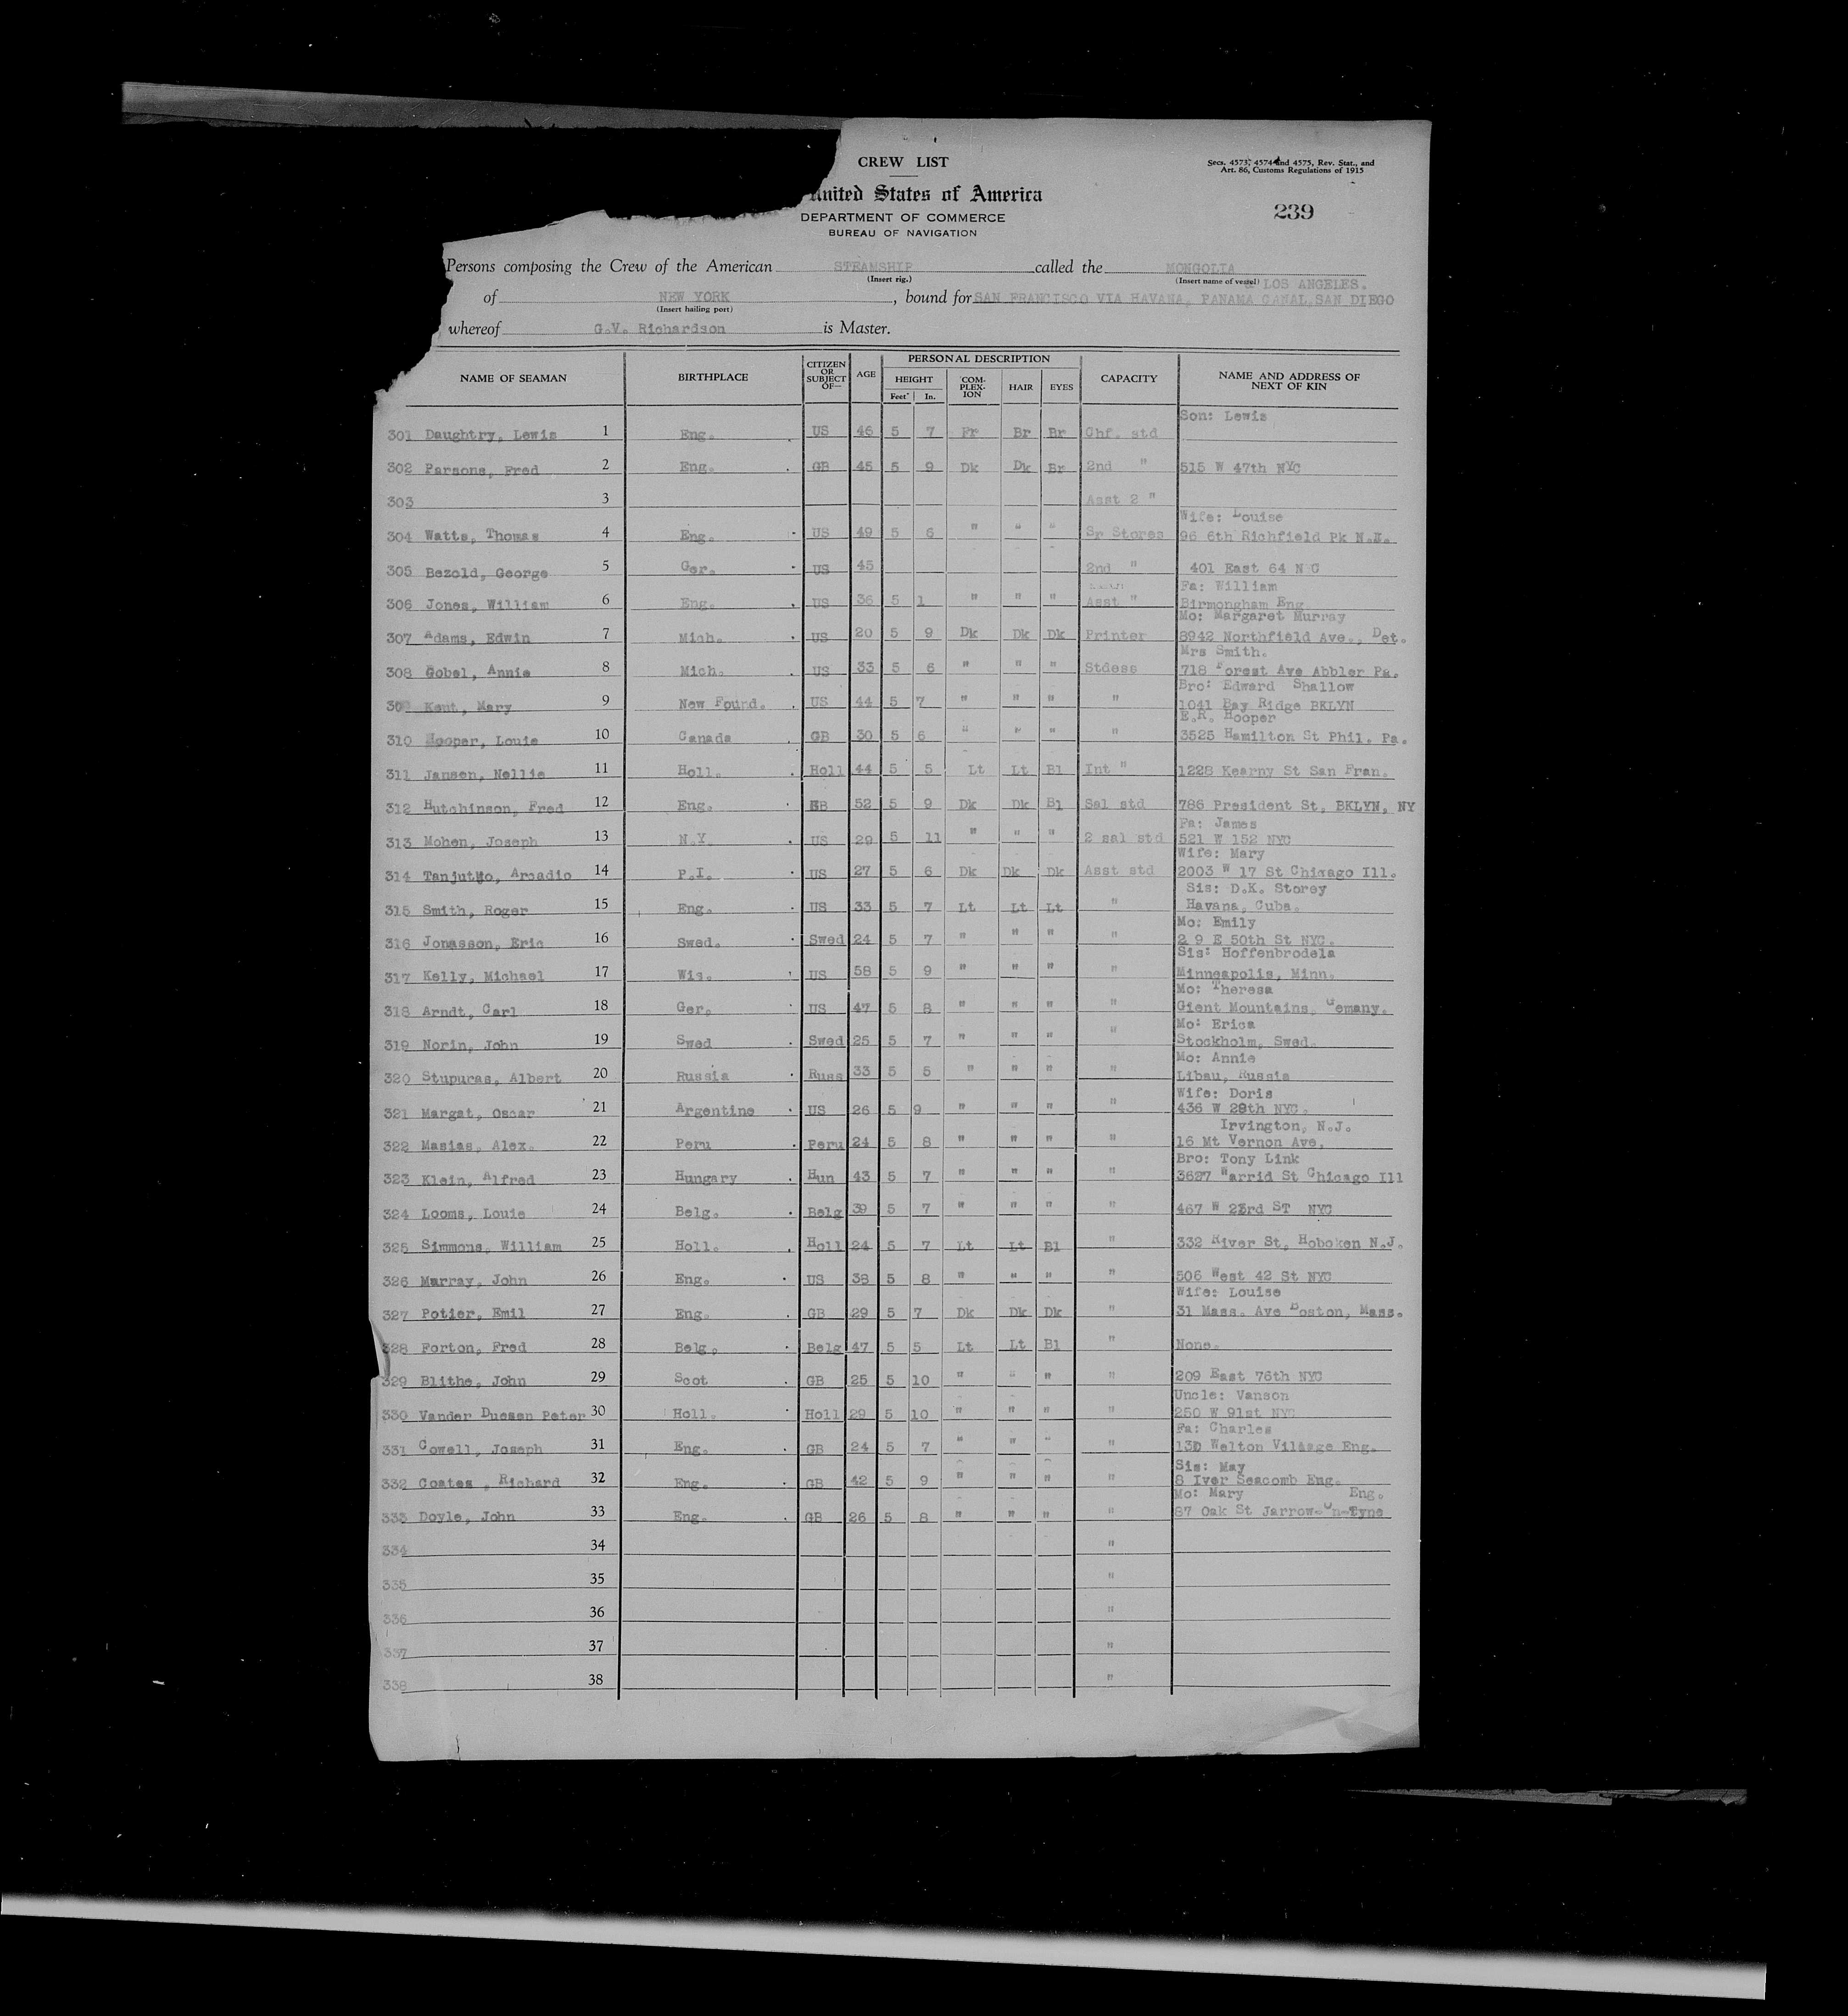 CREW LIST
Secs. 4573, 4574 and 4575, Rev. Stat., and
Art. 86, Customs Regulations of 1915
United States of America
239
DEPARTMENT OF COMMERCE
BUREAU OF NAVIGATION
Persons composing the Crew of the American STEAMSHIP called the MONGOLIA
(Insert rig.) (Insert name of vessel) & LOS ANGELES.
of NEW YORK, bound for SAN FRANCISCO VIA HAVANA, PANAMA CANAL, SAN DIEGO
(Insert hailing port)
whereof G.V. Richardson is Master.
NAME OF SEAMAN BIRTHPLACE CITIZEN OR SUBJECT OF— AGE PERSONAL DESCRIPTION CAPACITY NAME AND ADDRESS OF NEXT OF KIN
HEIGHT COM-PLEX-ION HAIR EYES
Feet In.
Son: Lewis
301 Daughtry, Lewis 1 Eng. US 46 5 7 Fr Br Br Chf. std
302 Parsons, Fred 2 Eng. GB 45 5 9 Dk Dk Br 2nd " 515 W 47th NYC
303 3 Asst 2 "
Wife: Louise
304 Watts, Thomas 4 Eng. US 49 5 6 " " " Sr Stores 96 6th Richfield Pk N.J.
305 Bezold, George 5 Ger. US 45 2nd " 401 East 64 N C
Fa: William
306 Jones, William 6 Eng. US 36 5 1 " " " Asst " Birmongham Eng
Mo: Margaret Murray
307 Adams, Edwin 7 Mich. US 20 5 9 Dk Dk Dk Printer 8942 Northfield Ave., Det.
Mrs Smith.
308 Gobel, Annie 8 Mich. US 33 5 6 " " " Stdess 718 Forest Ave Abbler Pa.
Bro: Edward Shallow
309 Kent, Mary 9 New Found. US 44 5 7 " " " " 1041 Bay Ridge BKLYN
E.R. Hooper
310 Hooper, Louie 10 Canada GB 30 5 6 " " " " 3525 Hamilton St Phil. Pa.
311 Jansen, Nellie 11 Holl. Holl 44 5 5 Lt Lt Bl Int " 1228 Kearny St San Fran.
312 Hutchinson, Fred 12 Eng. GB 52 5 9 Dk Dk Bl Sal std 786 President St, BKLYN, NY
Fa: James
313 Mohen, Joseph 13 N.Y. US 29 5 11 " " " 2 sal std 521 W 152 NYC
Wife: Mary
314 Tanjutco, Arcadio 14 P.I. US 27 5 6 Dk Dk Dk Asst std 2003 W 17 St Chicago Ill.
Sis: D.K. Storey
315 Smith, Roger 15 Eng. US 33 5 7 Lt Lt Lt " Havana, Cuba.
Mo: Emily
316 Jonasson, Eric 16 Swed. Swed 24 5 7 " " " " 2 9 E 50th St NYC.
Sis: Hoffenbrodela
317 Kelly, Michael 17 Wis. US 58 5 9 " " " " Minneapolis, Minn.
Mo: Theresa
318 Arndt, Carl 18 Ger. US 47 5 8 " " " " Gient Mountains, Gemany.
Mo: Erica
319 Norin, John 19 Swed Swed 25 5 7 " " " " Stockholm, Swed.
Mo: Annie
320 Stupuras, Albert 20 Russia Russ 33 5 5 " " " " Libau, Russia
Wife: Doris
321 Margat, Oscar 21 Argentine US 26 5 9 " " " " 436 W 29th NYC.
Irvington, N.J.
322 Masias, Alex. 22 Peru Peru 24 5 8 " " " " 16 Mt Vernon Ave.
Bro: Tony Link
323 Klein, Alfred 23 Hungary Hun 43 5 7 " " " " 3627 Warrid St Chicago Ill
324 Looms, Louie 24 Belg. Belg 39 5 7 " " " " 467 W 23rd ST NYC
325 Simmons, William 25 Holl. Holl 24 5 7 Lt Lt Bl " 332 River St, Hoboken N.J.
326 Murray, John 26 Eng. US 38 5 8 " " " " 506 West 42 St NYC
Wife: Louise
327 Potier, Emil 27 Eng. GB 29 5 7 Dk Dk Dk " 31 Mass. Ave Boston, Mass.
328 Forton, Fred 28 Belg. Belg 47 5 5 Lt Lt Bl " None.
329 Blithe, John 29 Scot GB 25 5 10 " " " " 209 East 76th NYC
Uncle: Vanson
330 Vander Duesen Peter 30 Holl. Holl 29 5 10 " " " " 250 W 91st NYC
Fa: Charles
331 Cowell, Joseph 31 Eng. GB 24 5 7 " " " " 13D Welton Village Eng.
Sis: May
332 Coates , Richard 32 Eng. GB 42 5 9 " " " " 8 Iver Seacomb Eng.
Mo: Mary Eng.
333 Doyle, John 33 Eng. GB 26 5 8 " " " " 87 Oak St Jarrow-On-Tyne
334 34 "
335 35 "
336 36 "
337 37 "
338 38 "